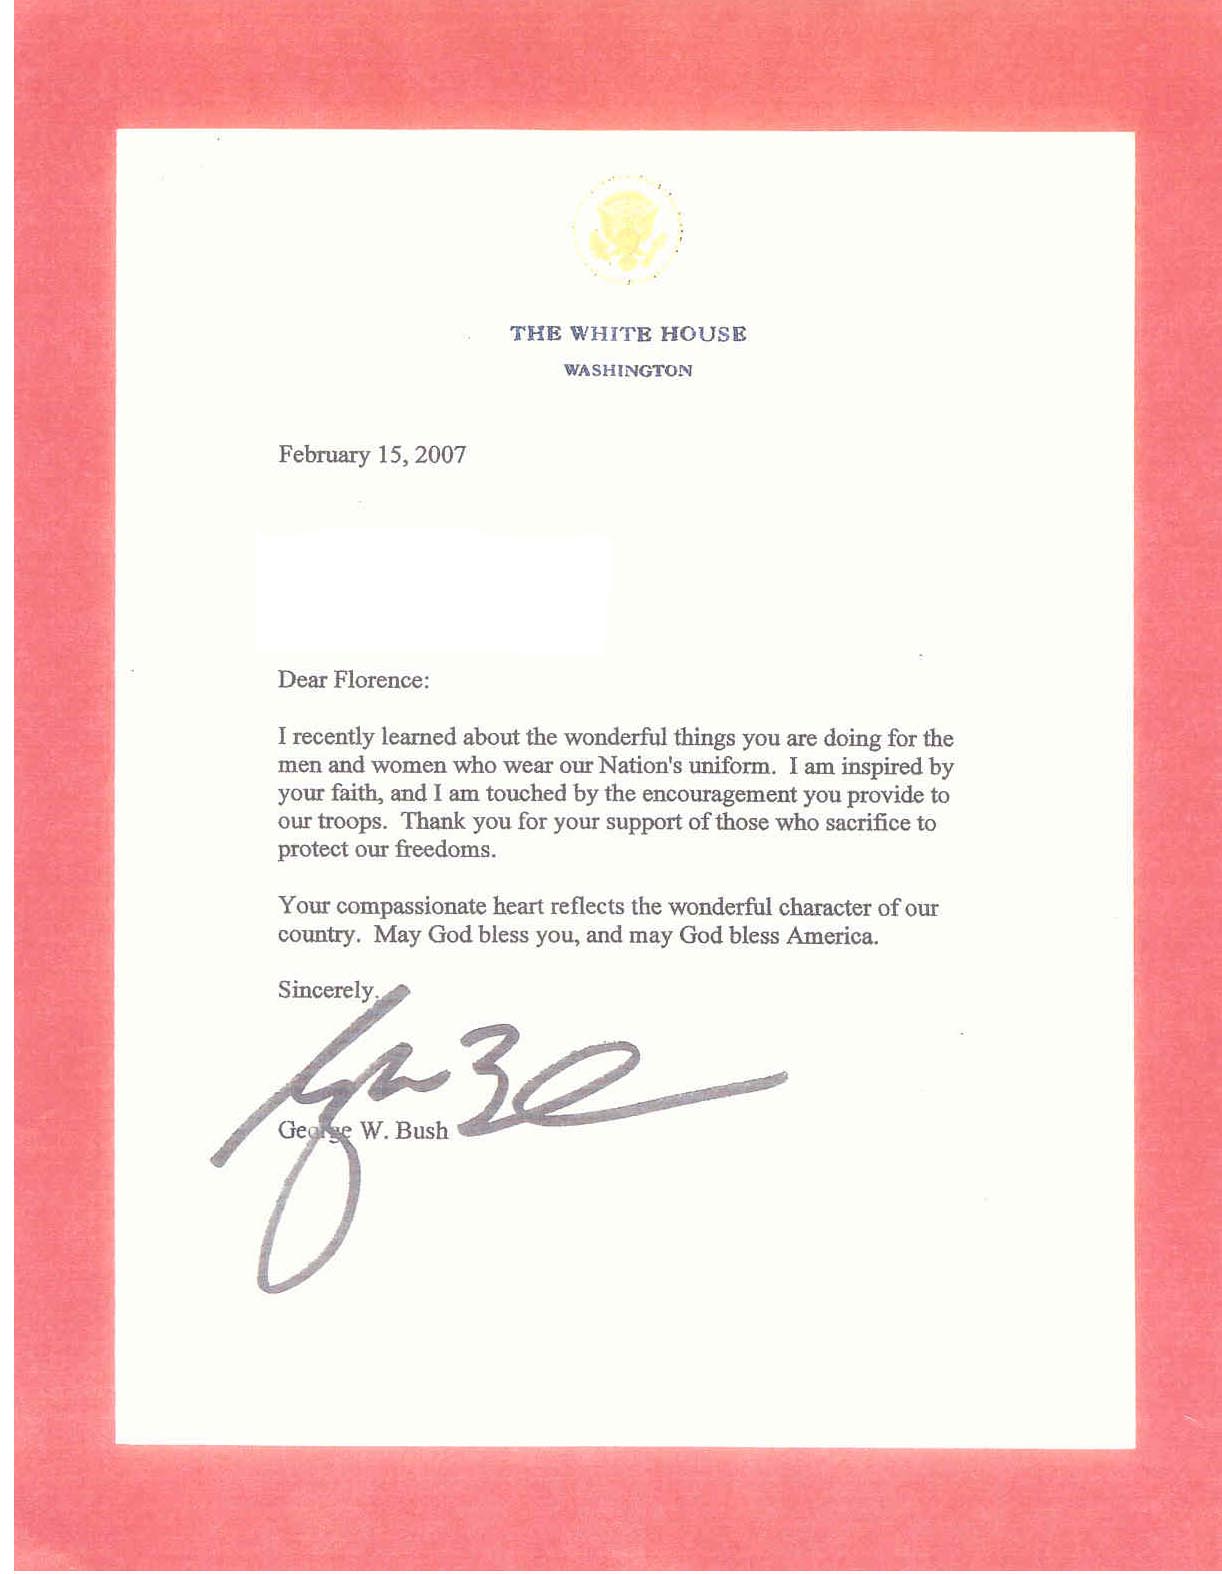 THE WHITE HOUSE
WASHINGTON
February 15, 2007
Dear Florence:
I recently learned about the wonderful things you are doing for the
men and women who wear our Nation's uniform.  I am inspired by
your faith, and I am touched by the encouragement you provide to
our troops.  Thank you for your support of those who sacrifice to
protect our freedoms.
Your compassionate heart reflects the wonderful character of our
country.  May God bless you, and may God bless America.
Sincerely,
George W. Bush